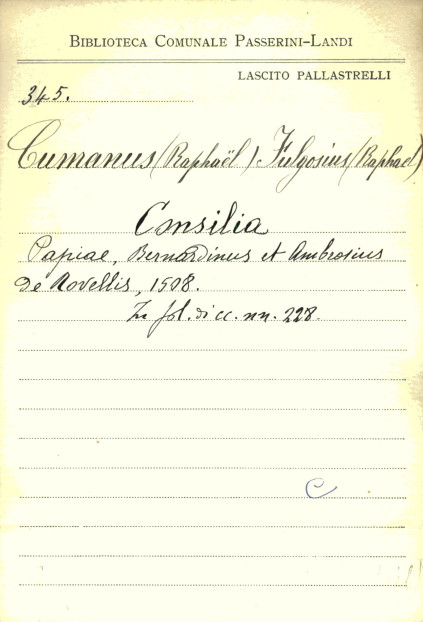 BIBLIOTECA COMUNALE PASSERINI-LANDI
LASCITO PALLASTRELLI
345.
Cumanus (Raphaël) Fulgosius (Raphael)
Consilia
Papiae, Bernardinus et Ambrosius
de Rovellis, 1508.
In fol. di cc. nn. 228.
C